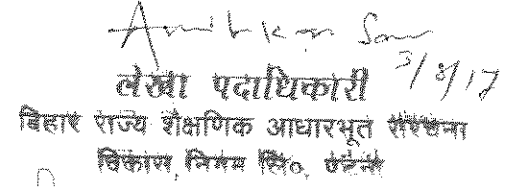 3/8/17
लेखा पदाधिकारी
बिहार राज्य शैक्षणिक आधारभूत संरचना
विकास निगम लि०, पटना